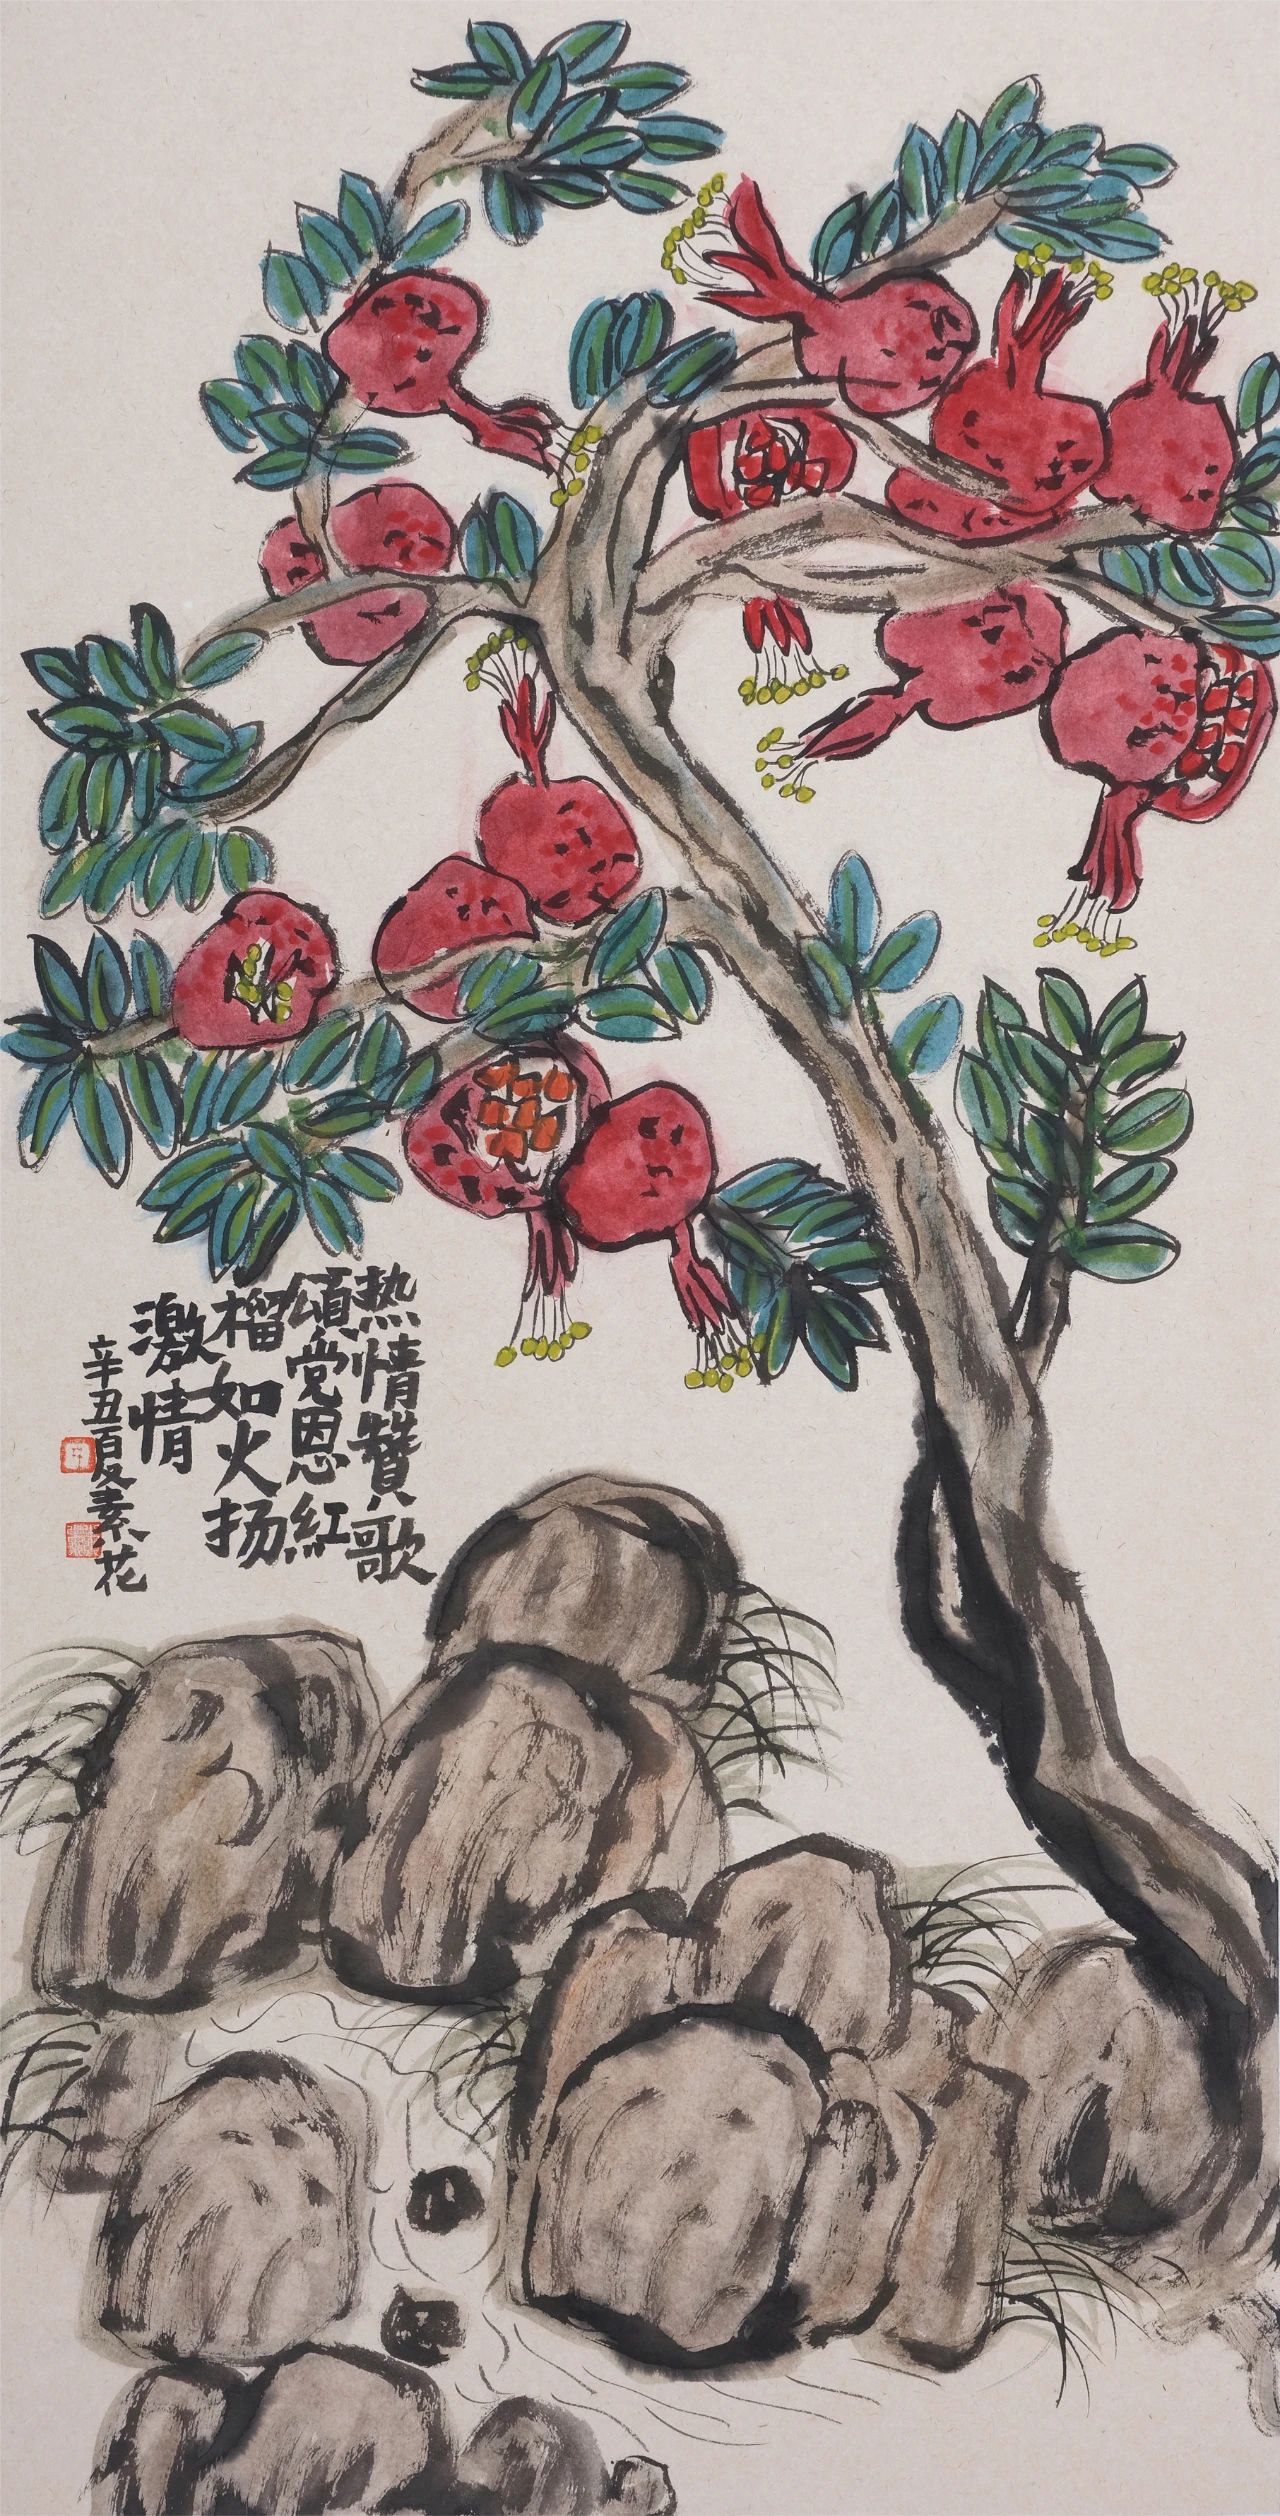 热情賛歌
頌党恩紅
榴如火扬
激情
辛丑夏素花